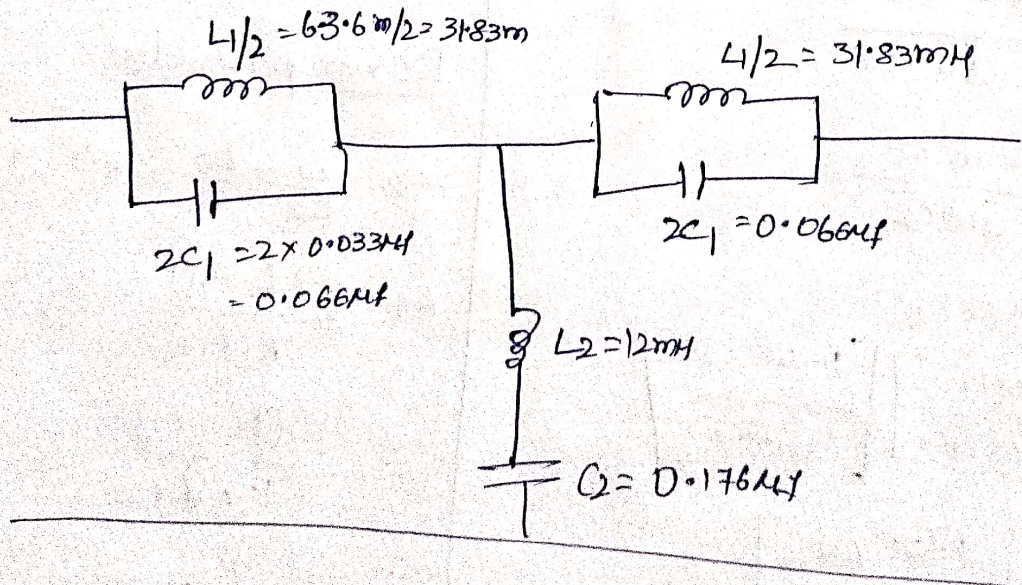 L1/2 = 63.6m/2 = 31.83m
L1/2 = 31.83mH
2C1 = 2 x 0.033μf
= 0.066μf
2C1 = 0.066μf
L2 = 12mH
C2 = 0.176μf